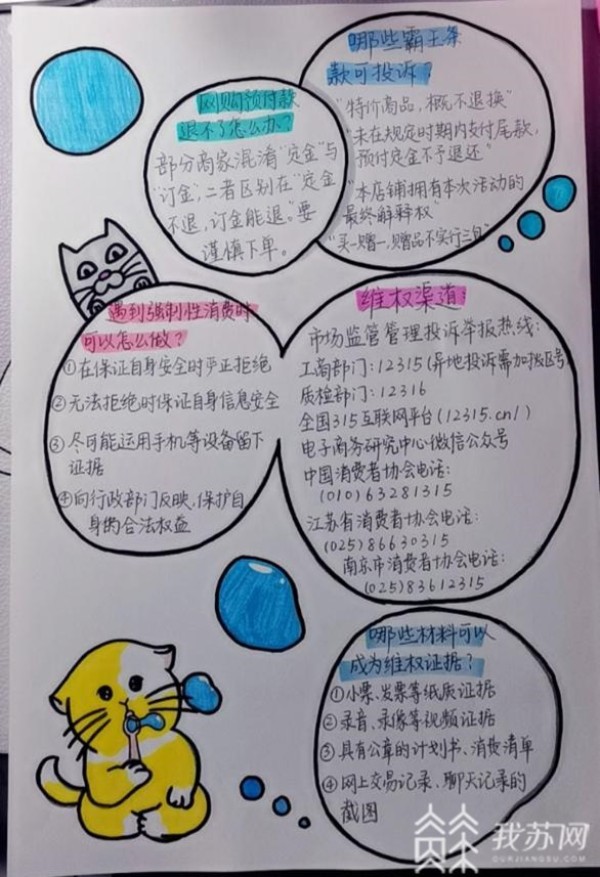 网购预付款
退不了怎么办？
部分商家混淆"定金"与
"订金"，二者区别在"定金
不退，订金能退。"要
谨慎下单。
哪些霸王条
款可投诉？
"特价商品，概不退换"
"未在规定时期内支付尾款，
预付定金不予退还"
"本店铺拥有本次活动的
最终解释权"
"买一赠一，赠品不实行三包"
遇到强制性消费时
可以怎么做？
①在保证自身安全时严正拒绝
②无法拒绝时保证自身信息安全
③尽可能运用手机等设备留下
证据
④向行政部门反映，保护自
身的合法权益
维权渠道
市场监管管理投诉举报热线：
工商部门：12315(异地投诉需加拨区号)
质检部门：12316
全国315互联网平台(12315.cn/)
电子商务研究中心微信公众号
中国消费者协会电话：
(010)63281315
江苏省消费者协会电话：
(025)86630315
南京市消费者协会电话：
(025)83612315
哪些材料可以
成为维权证据？
①小票、发票等纸质证据
②录音、录像等视频证据
③具有公章的计划书、消费清单
④网上交易记录、聊天记录的
截图
我苏网
OURJIANGSU.COM